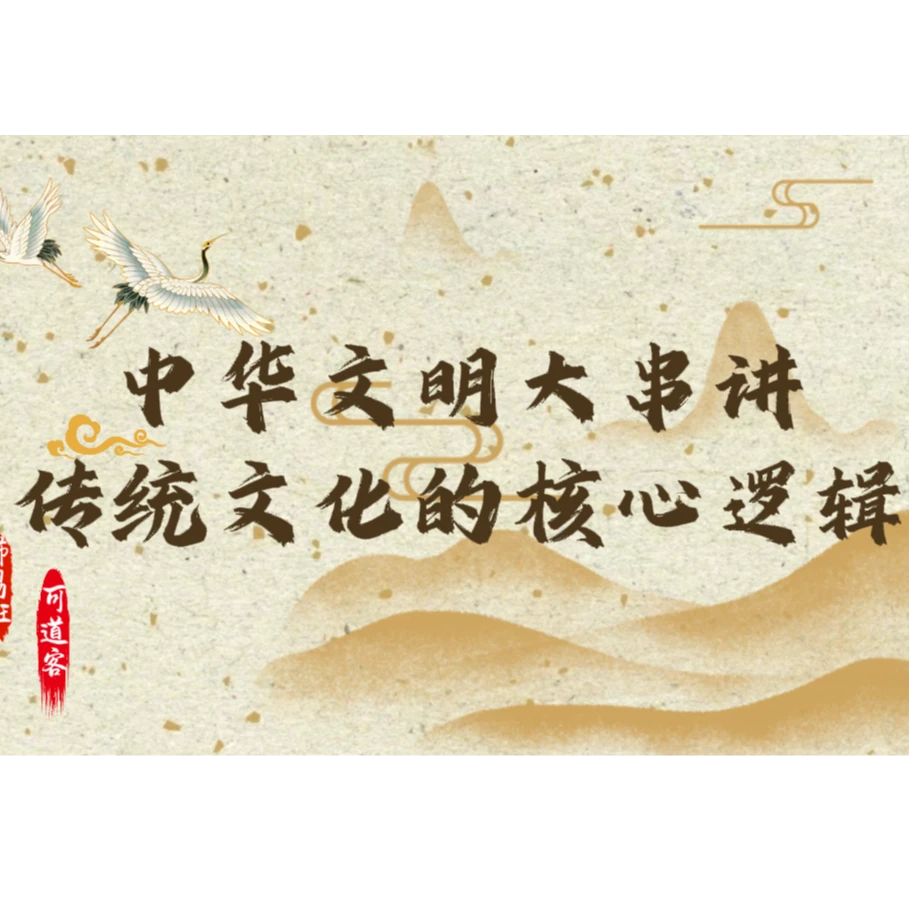 中华文明大串讲
传统文化的核心逻辑
可道客